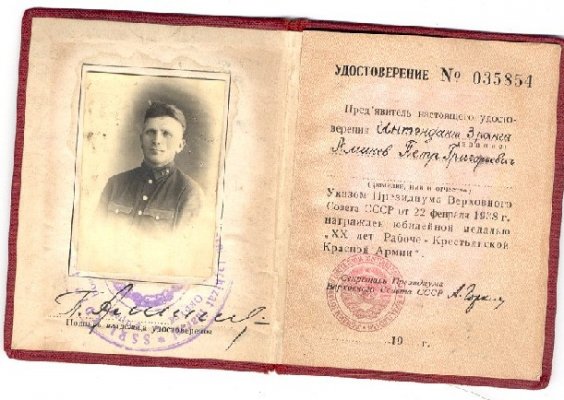 Подпись владельца удостоверения
УДОСТОВЕРЕНИЕ № 035854
Пред'явитель настоящего удосто-
верения Интендант 3 ранга
Петр Григорьевич
(фамилия, имя и отчество)
Указом Президиума Верховного
Совета СССР от 22 февраля 1938 г.
награжден юбилейной медалью
„XX лет Рабоче-Крестьянской
Красной Армии".
Секретарь Президиума
Верховного Совета СССР А. Горкин
19 г.